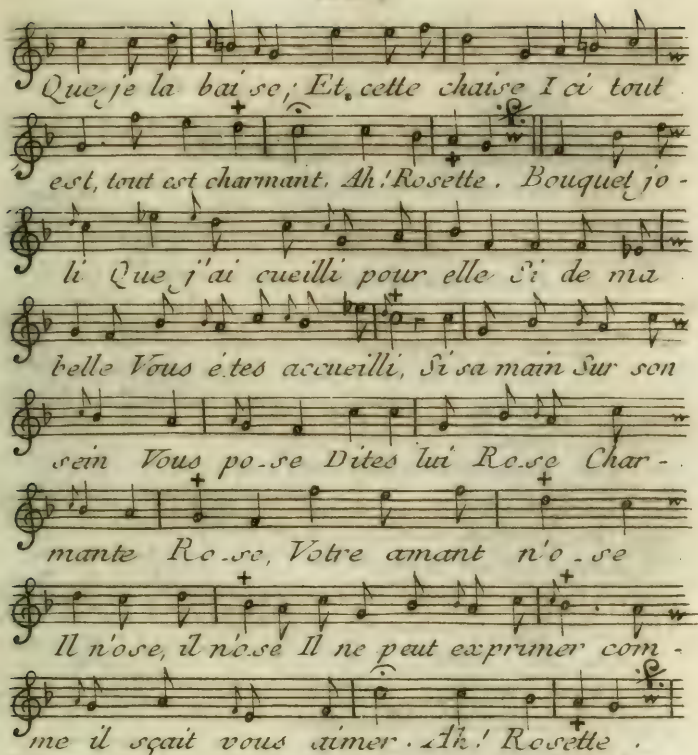 Que je la bai se; Et, cette chaise I ci tout
est, tout est charmant. Ah! Rosette. Bouquet jo-
li Que j'ai cueilli pour elle Si de ma
belle Vous étes accueilli, Si sa main Sur son
sein Vous po-se Dites lui Ro-se Char-
mante Ro-se, Votre amant n'o-se
Il n'ose, il n'ose Il ne peut exprimer com-
me il sçait vous aimer. Ah! Rosette.